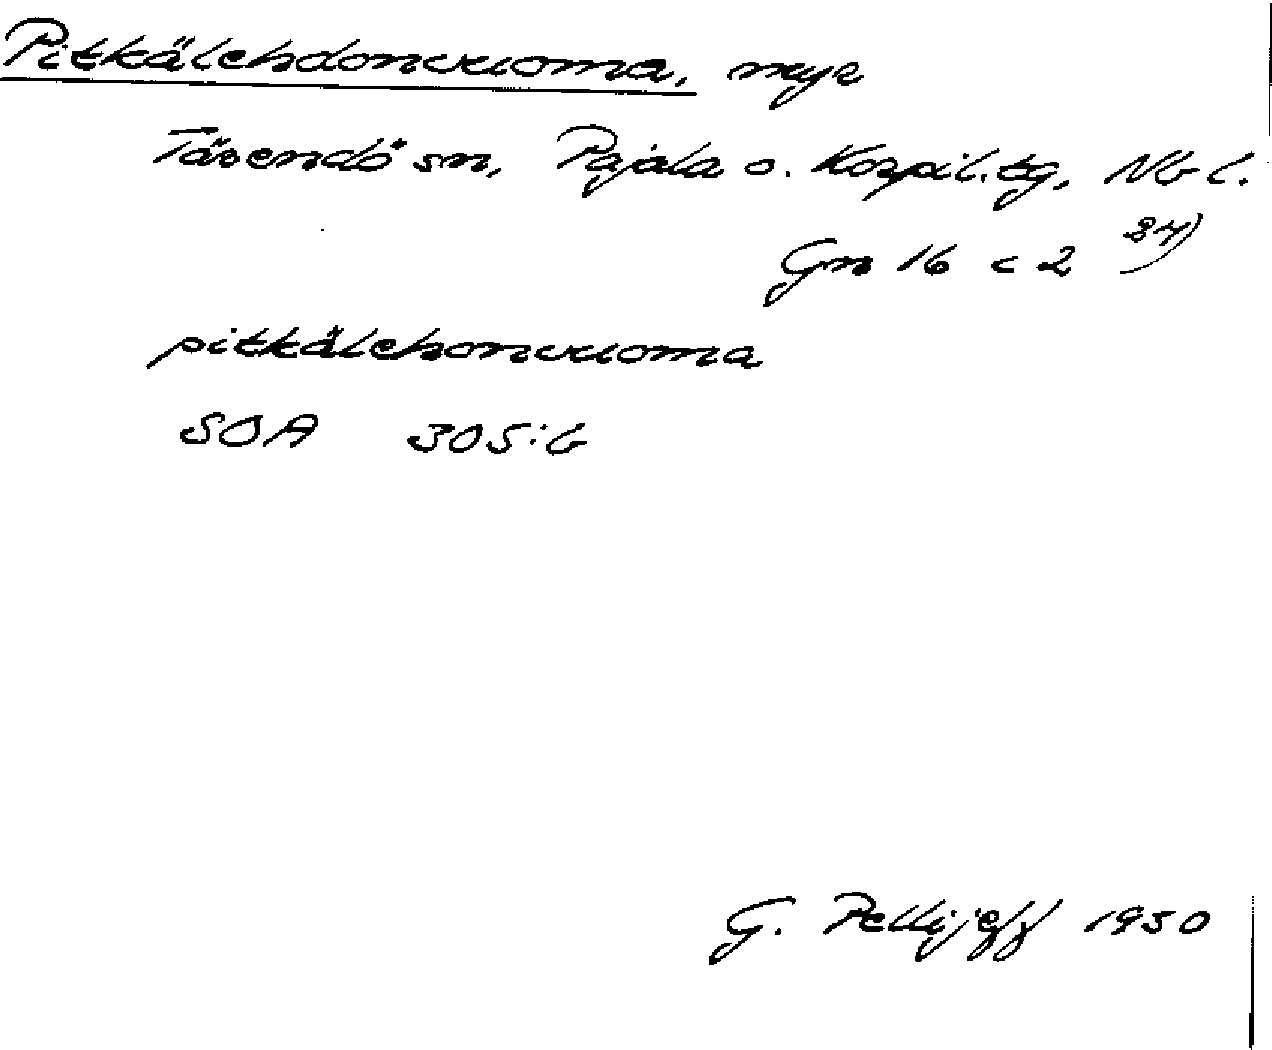 Pitkälehdonvuoma, myr
Tärendö sn, Pajala o. Korpil. tg, Nb l.
Gn 16 c 2 84)
pitkälehonvuoma
SOA 305:6
G. Pellijeff 1950